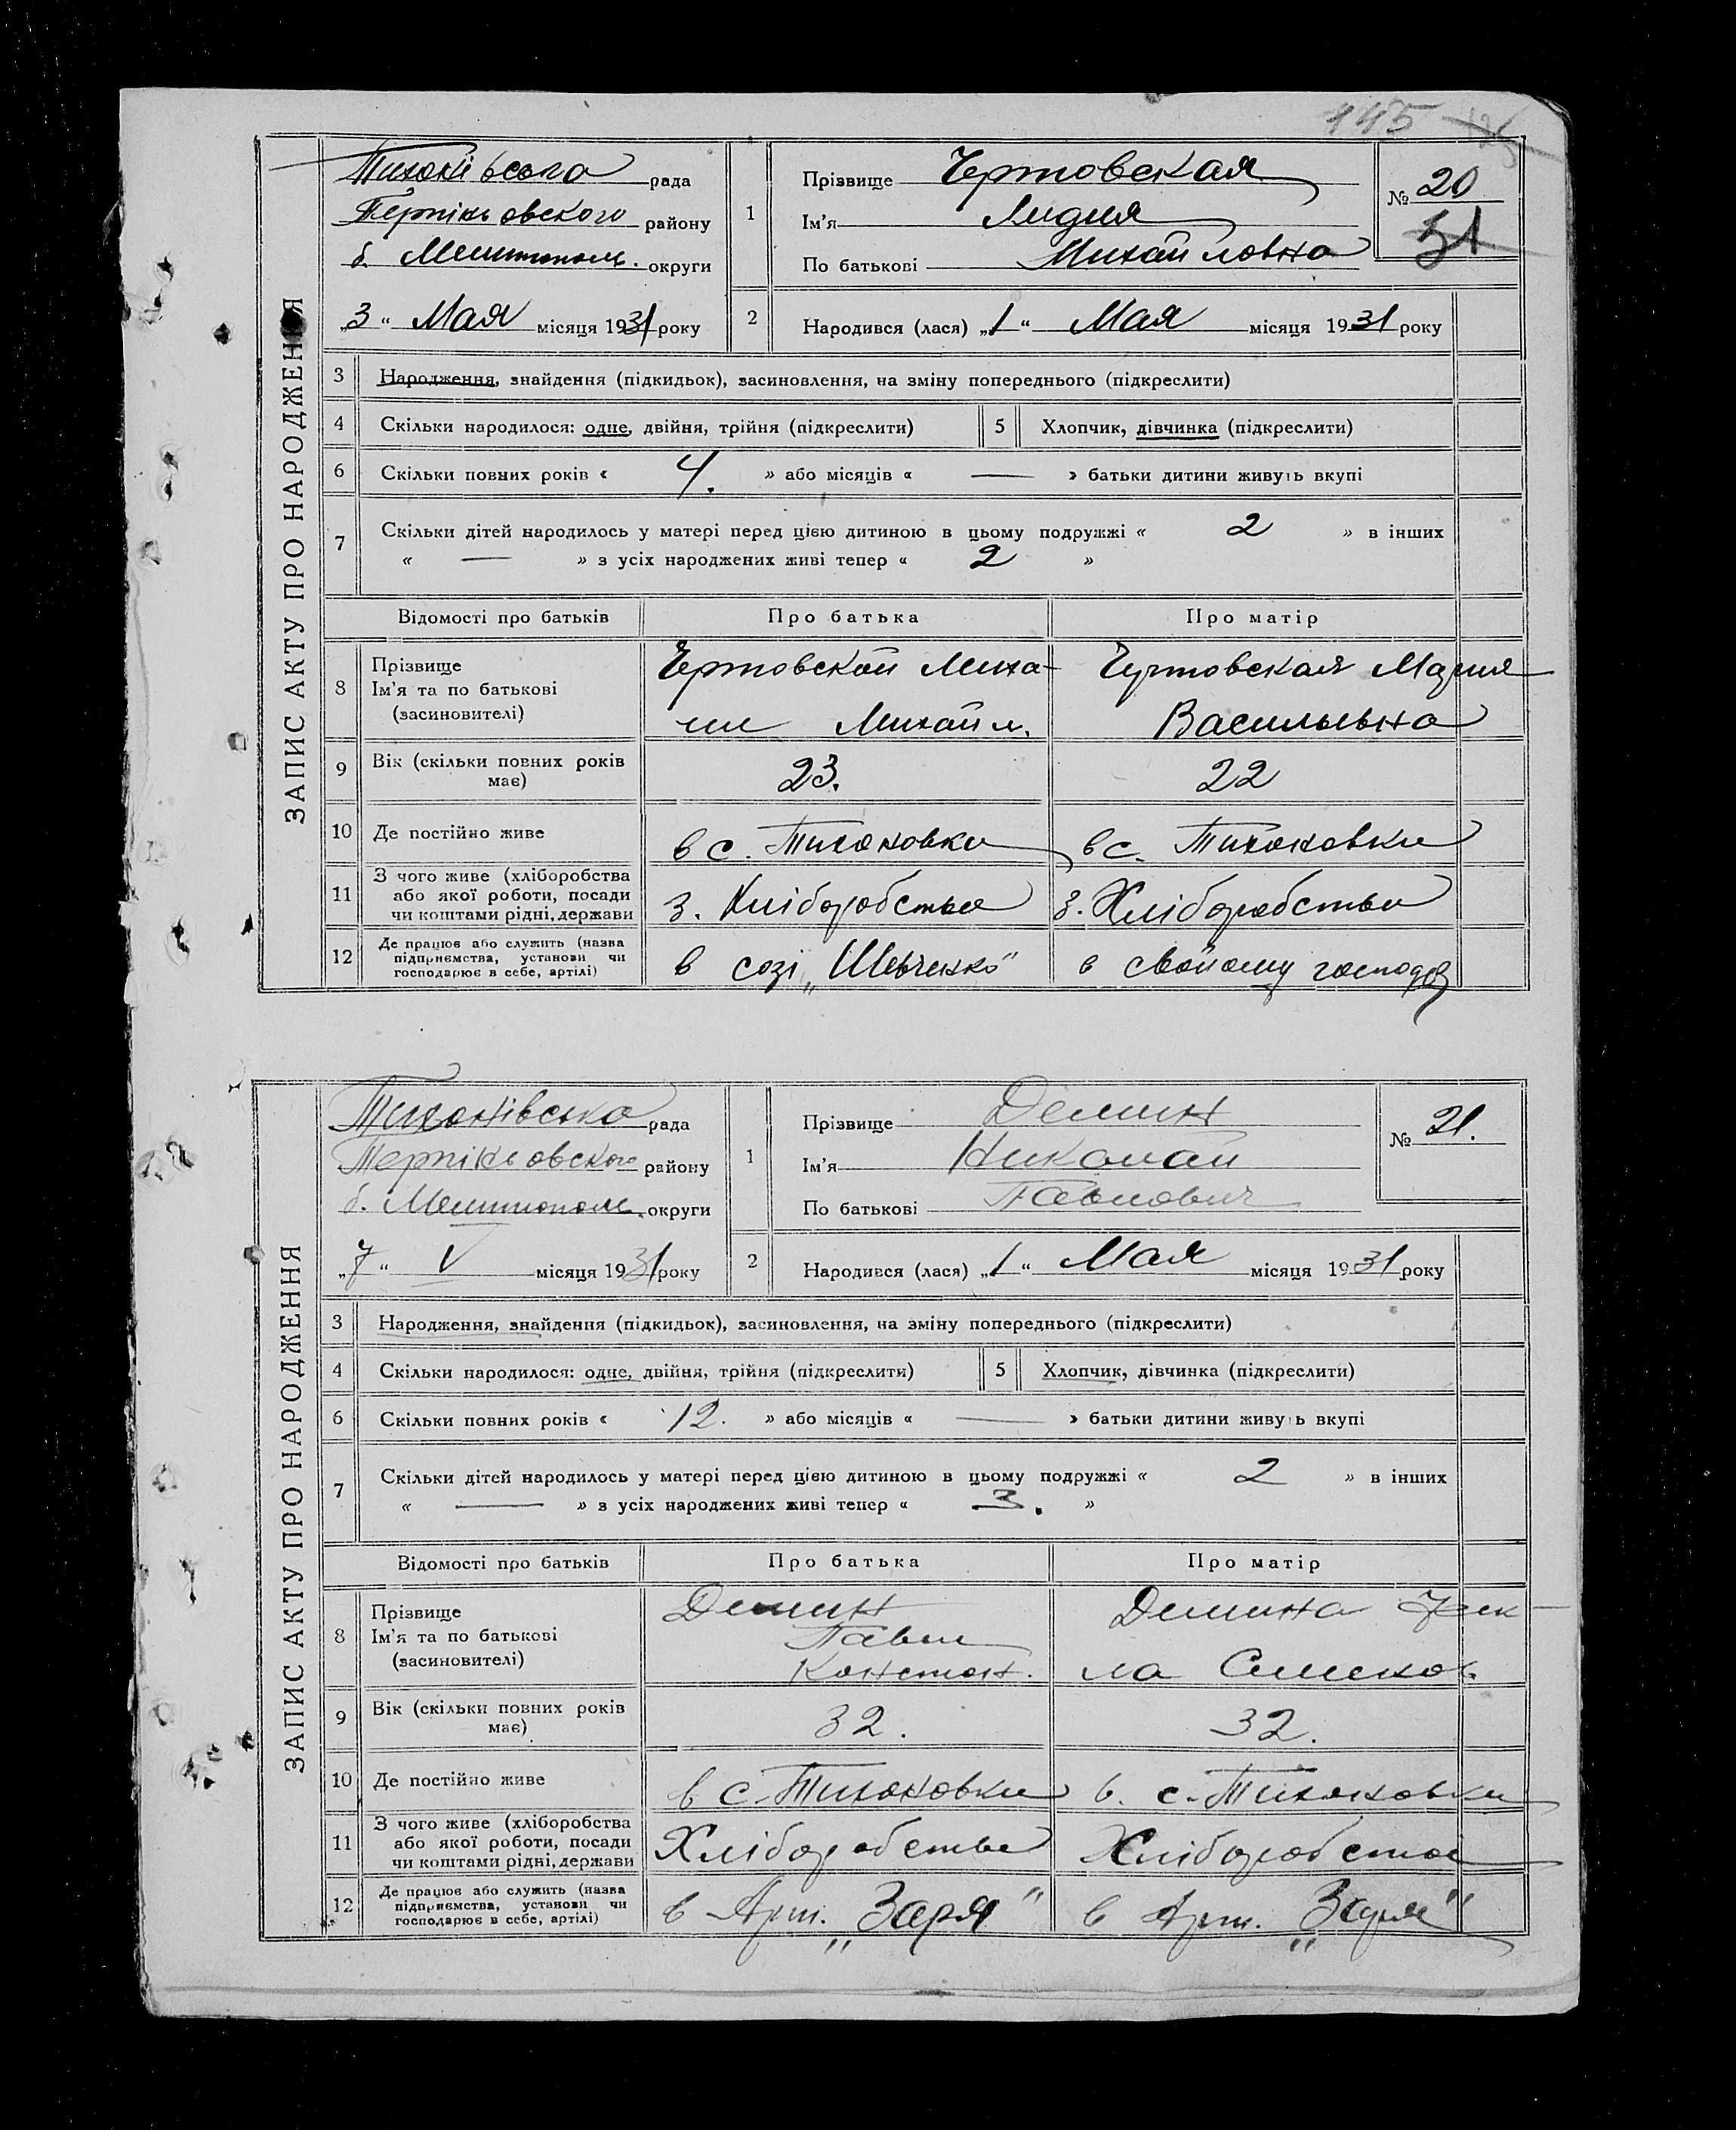 145
Тихонівська рада
Терпіньовского району
б. Мелитополь. округи
„3“ Мая місяця 1931 року
1
Прізвище Чертовская
Ім'я Лидия
По батькові Михайловна
№ 20
31
2
Народився (лася) „1“ Мая місяця 1931 року
ЗАПИС АКТУ ПРО НАРОДЖЕННЯ
3 Народження, знайдення (підкидьок), засиновлення, на зміну попереднього (підкреслити)
4 Скільки народилося: одне, двійня, трійня (підкреслити) 5 Хлопчик, дівчинка (підкреслити)
6 Скільки повних років « 4. » або місяців « — » батьки дитини живуть вкупі
7 Скільки дітей народилось у матері перед цією дитиною в цьому подружжі « 2 » в інших
« — » з усіх народжених живі тепер « 2 »
Відомості про батьків Про батька Про матір
8 Прізвище
Ім'я та по батькові
(засиновителі)
Чертовской Миха-
ил Михайл.
Чертовская Мария
Васильевна
9 Вік (скільки повних років
має)
23. 22
10 Де постійно живе в с. Тихоновки в с. Тихоновки
11 З чого живе (хліборобства
або якої роботи, посади
чи коштами рідні, держави
з. Хліборобства з. Хліборобства
12 Де працює або служить (назва
підприємства, установи чи
господарює в себе, артілі)
в созі „Шевченко“ в свойому господ
Тихонівська рада
Терпіньовского району
б. Мелитополь. округи
„7“ V місяця 1931 року
1
Прізвище Демин
Ім'я Николай
По батькові Павлович
№ 21.
2
Народився (лася) „1“ Мая місяця 1931 року
ЗАПИС АКТУ ПРО НАРОДЖЕННЯ
3 Народження, знайдення (підкидьок), засиновлення, на зміну попереднього (підкреслити)
4 Скільки народилося: одне, двійня, трійня (підкреслити) 5 Хлопчик, дівчинка (підкреслити)
6 Скільки повних років « 12. » або місяців « — » батьки дитини живуть вкупі
7 Скільки дітей народилось у матері перед цією дитиною в цьому подружжі « 2 » в інших
« — » з усіх народжених живі тепер « 3. »
Відомості про батьків Про батька Про матір
8 Прізвище
Ім'я та по батькові
(засиновителі)
Демин
Павел
Констан.
Демина
ла Семенов.
9 Вік (скільки повних років
має)
32. 32.
10 Де постійно живе в с. Тихоновки в. с. Тихоновки
11 З чого живе (хліборобства
або якої роботи, посади
чи коштами рідні, держави
Хліборобства Хліборобства
12 Де працює або служить (назва
підприємства, установи чи
господарює в себе, артілі)
в Арт. „Заря“ в Арт. „Заря“